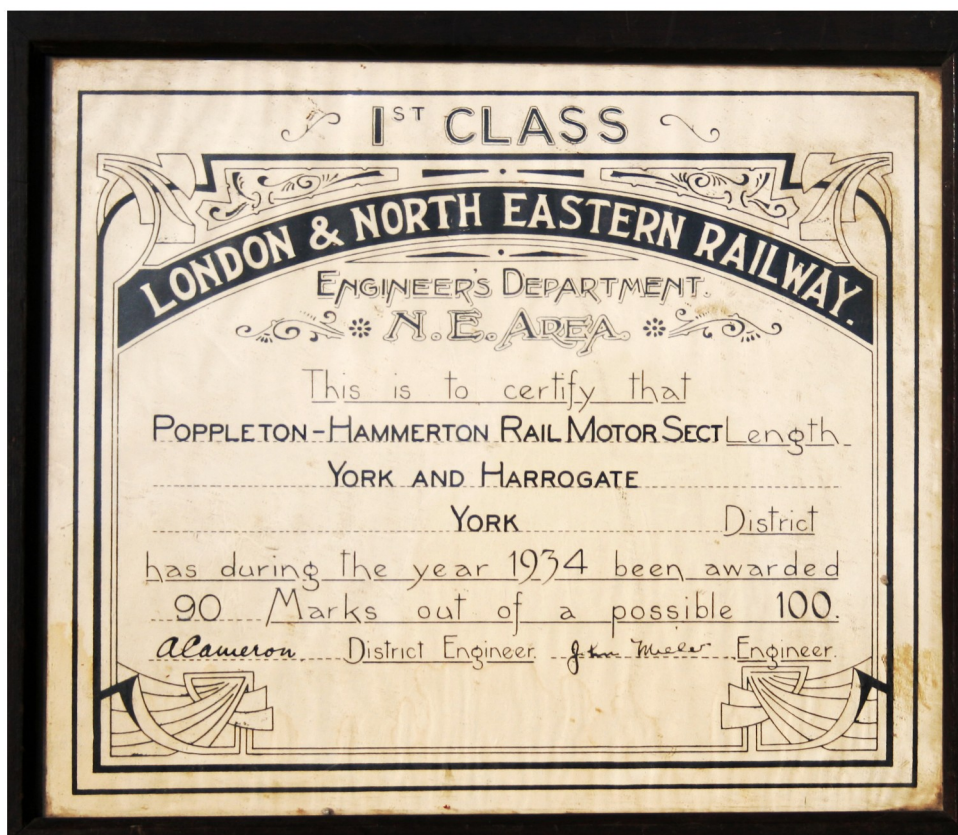 1ST CLASS
LONDON & NORTH EASTERN RAILWAY.
ENGINEER'S DEPARTMENT.
N.E. AREA.
This is to certify that
POPPLETON-HAMMERTON RAIL MOTOR SECT Length
YORK AND HARROGATE
YORK District
has during the year 1934 been awarded
90 Marks out of a possible 100.
ACameron District Engineer. John Miller Engineer.